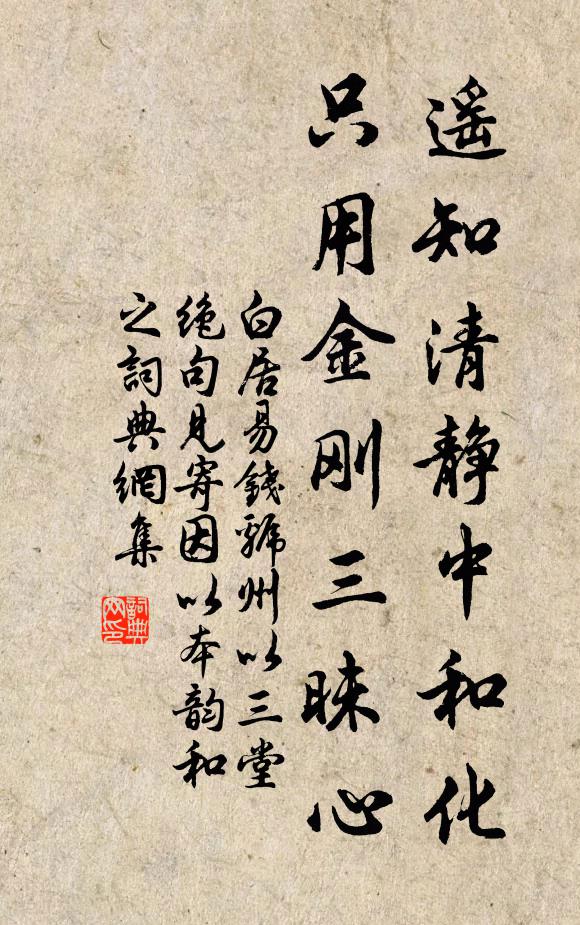 遥知清静中和化
只用金刚三昧心
白居易錢虢州以三堂
絶句見寄因以本韵和
之詞典網集
詞典
网印